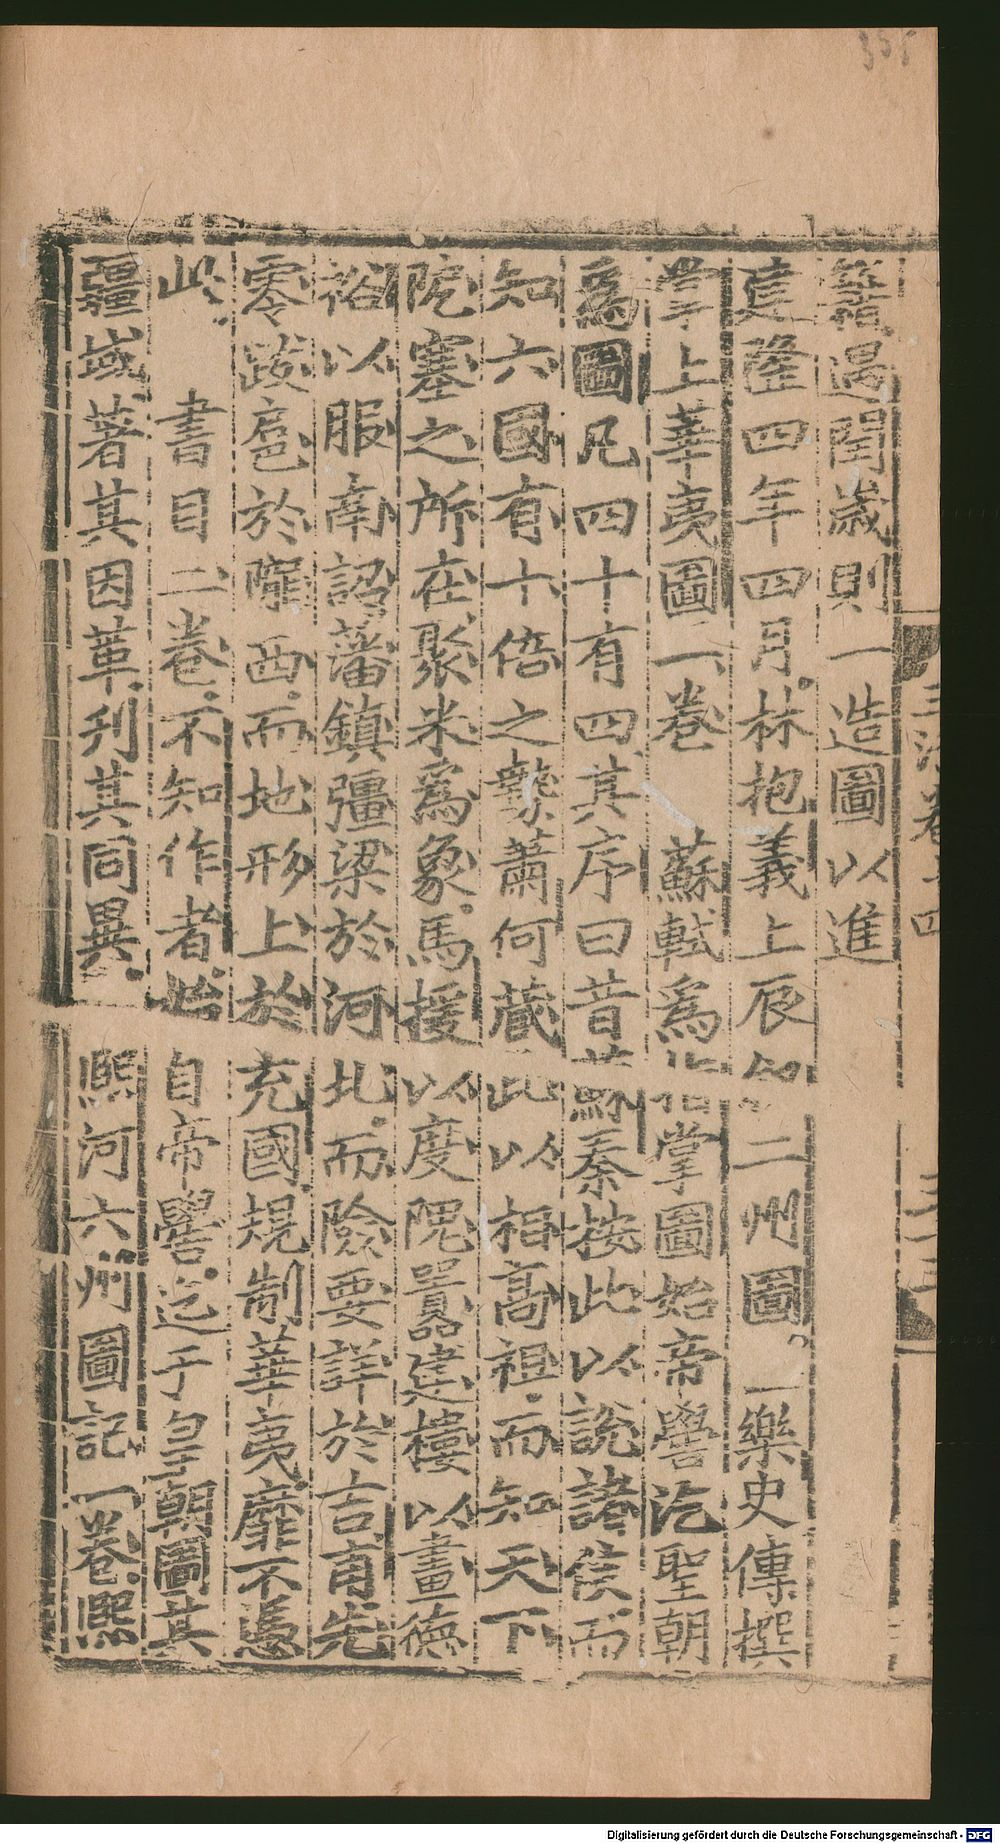 籍遇閏歲則一造圖以進
建隆四年四月林抱義上辰 二州圖 樂史傳撰
掌上華夷圖一卷 蘇軾爲指掌圖始帝嚳迄聖朝
爲圖凡四十有四其序曰昔蘇秦按此以說諸侯而
知六國有十倍之勢蕭何藏此以相高祖而知天下
阨塞之所在聚米爲象馬援以度隗囂建樓以畫德
裕以服南詔藩鎮彊梁於河北而險要詳於吉甫先
零跋扈於隴西而地形上於充國規制華夷靡不憑
此
書目二卷不知作者始自帝嚳迄于皇朝圖其
疆域著其因革刋其同異 熙河六州圖記一卷熙
三 卷 四
355
Digitalisierung gefördert durch die Deutsche Forschungsgemeinschaft - DFG